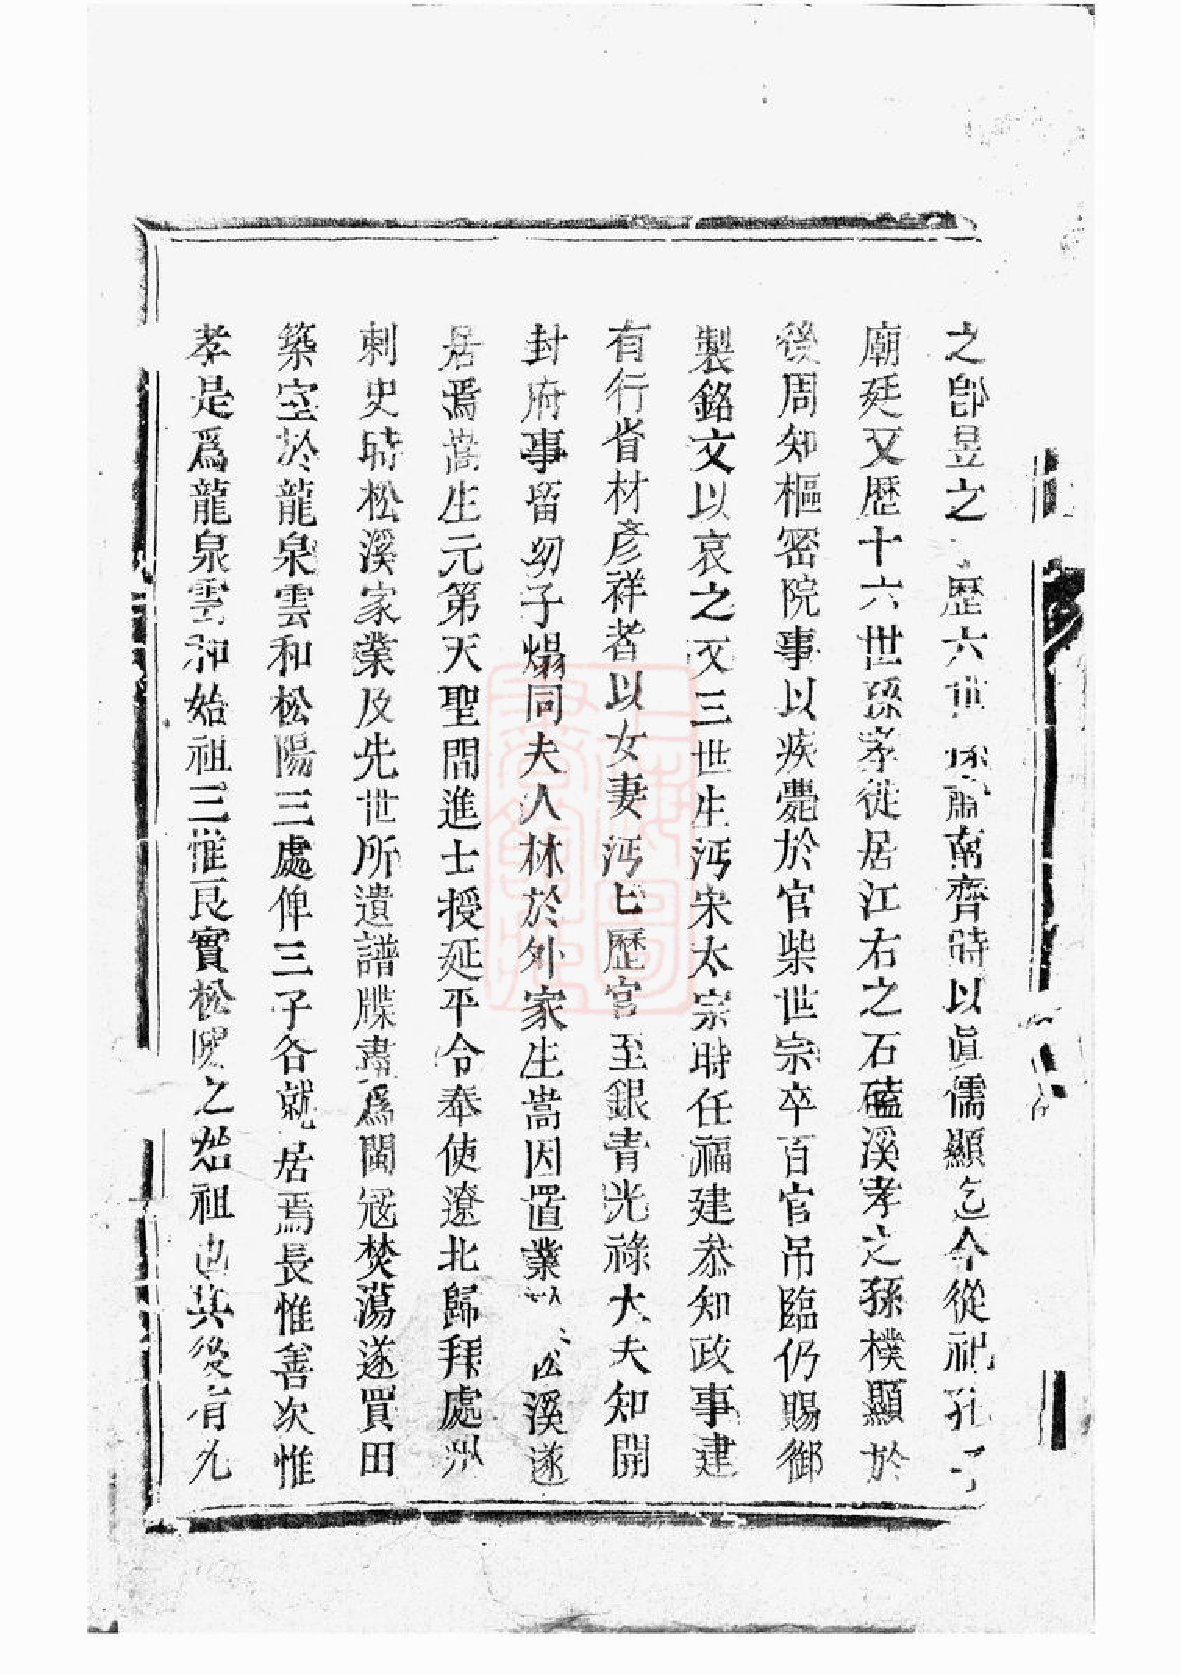 之卽昱之歷六世孫肅南齊時以眞儒顯迄今從祀孔子
廟廷又歷十六世孫孝徙居江右之石磕溪孝之孫樸顯於
後周知樞密院事以疾薨於官柴世宗卒百官吊臨仍賜御
製銘文以哀之又三世生沔宋太宗時任福建叅知政事建
有行省材彥祥者以女妻沔七歷官至銀青光祿大夫知開
封府事留幼子煬同夫人林於外家生嵩因置業松溪遂
居焉嵩生元第天聖間進士授延平令奉使遼北歸拜處州
刺史時松溪家業及先世所遺譜牒盡爲閩冦焚蕩遂買田
築室於龍泉雲和松陽三處俾三子各就居焉長惟善次惟
孝是爲龍泉雲和始祖三惟良實松陽之始祖也其後有九
上海圖書館藏